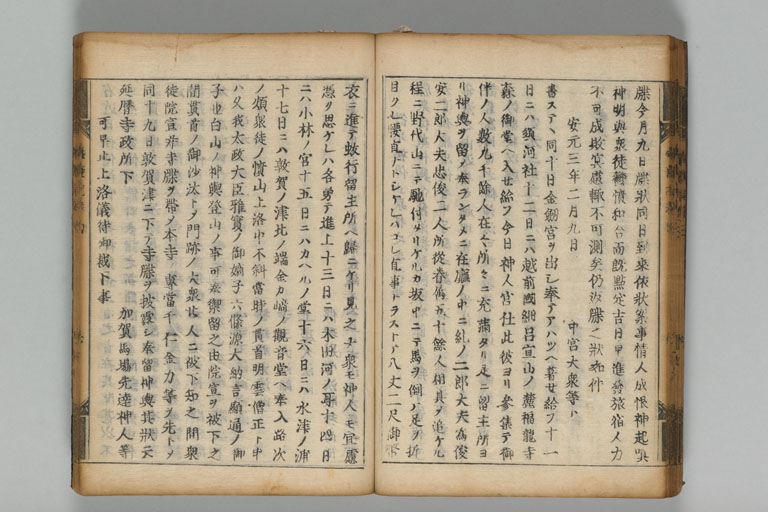 牒今月九日牒状同日到来依状案事情人成恨神起嗔
神明與衆徒鬱憤和合而既點定吉日早進發旅宿人力
不可成敗冥慮輙不可測矣仍返牒之状如件
安元三年二月九日　中宮大衆等ト
書ステヽ同十日金劔宮ヲ出シ奉テアハツヘ着セ給フ十一
日ニハ須河社十二日ニハ越前國細呂宜山ノ麓福龍寺
森ノ御堂ヘ入セ給フ今日神人宮仕此彼ヨリ参集テ御
伴ノ人數九十餘人在々所々ニ充滿タリ是ニ留主所ヨ
リ神輿ヲ留メ奉ランタメニ在廳ノ中ニ糺ノ二郎大夫為俊
安二郎大夫忠俊二人所從眷属五十餘人相具ヲ追ケル
程ニ野代山ニテ馳付タリケルカ坂中ニテ馬ヲ倒ハ足ヲ折
目クレ腰直事トラストテ八丈二尺御幣
衣ニ進テ蚊行留主所ヘ歸ニケリ見之ヲ衆モ神人モ冥慮
憑ク思ケレハ各勇テ進上十三日ニハ木田河ノ耳十四日
ニハ小林ノ宮十五日ニハカヘルノ堂十六日ニハ水津ノ浦
十七日ニハ敦賀ノ津北ノ端金カ崎ノ觀音堂ヘ奉入此次
ノ頌衆徒ノ憤山上洛中不斜當時ノ貫首明雲僧正ト申
ハ久我太政大臣雅實ノ御嫡子六條源大納言顕通ノ御
子也白山ノ神輿登山ノ事可奉禦留之由院宣ヲ被下之
間貫首ノ御沙汰トヲ門跡ノ大衆北人ニ被下知之間衆
徒院宣并寺牒ヲ帯ノ本寺ノ專當千仁金力等ヲ先トヲ
同十九日敦賀津ニ下テ寺牒ヲ披露シ奉留神輿其状云
延暦寺政所下　加賀馬場先達神人等
可早止上洛儀待御裁下事